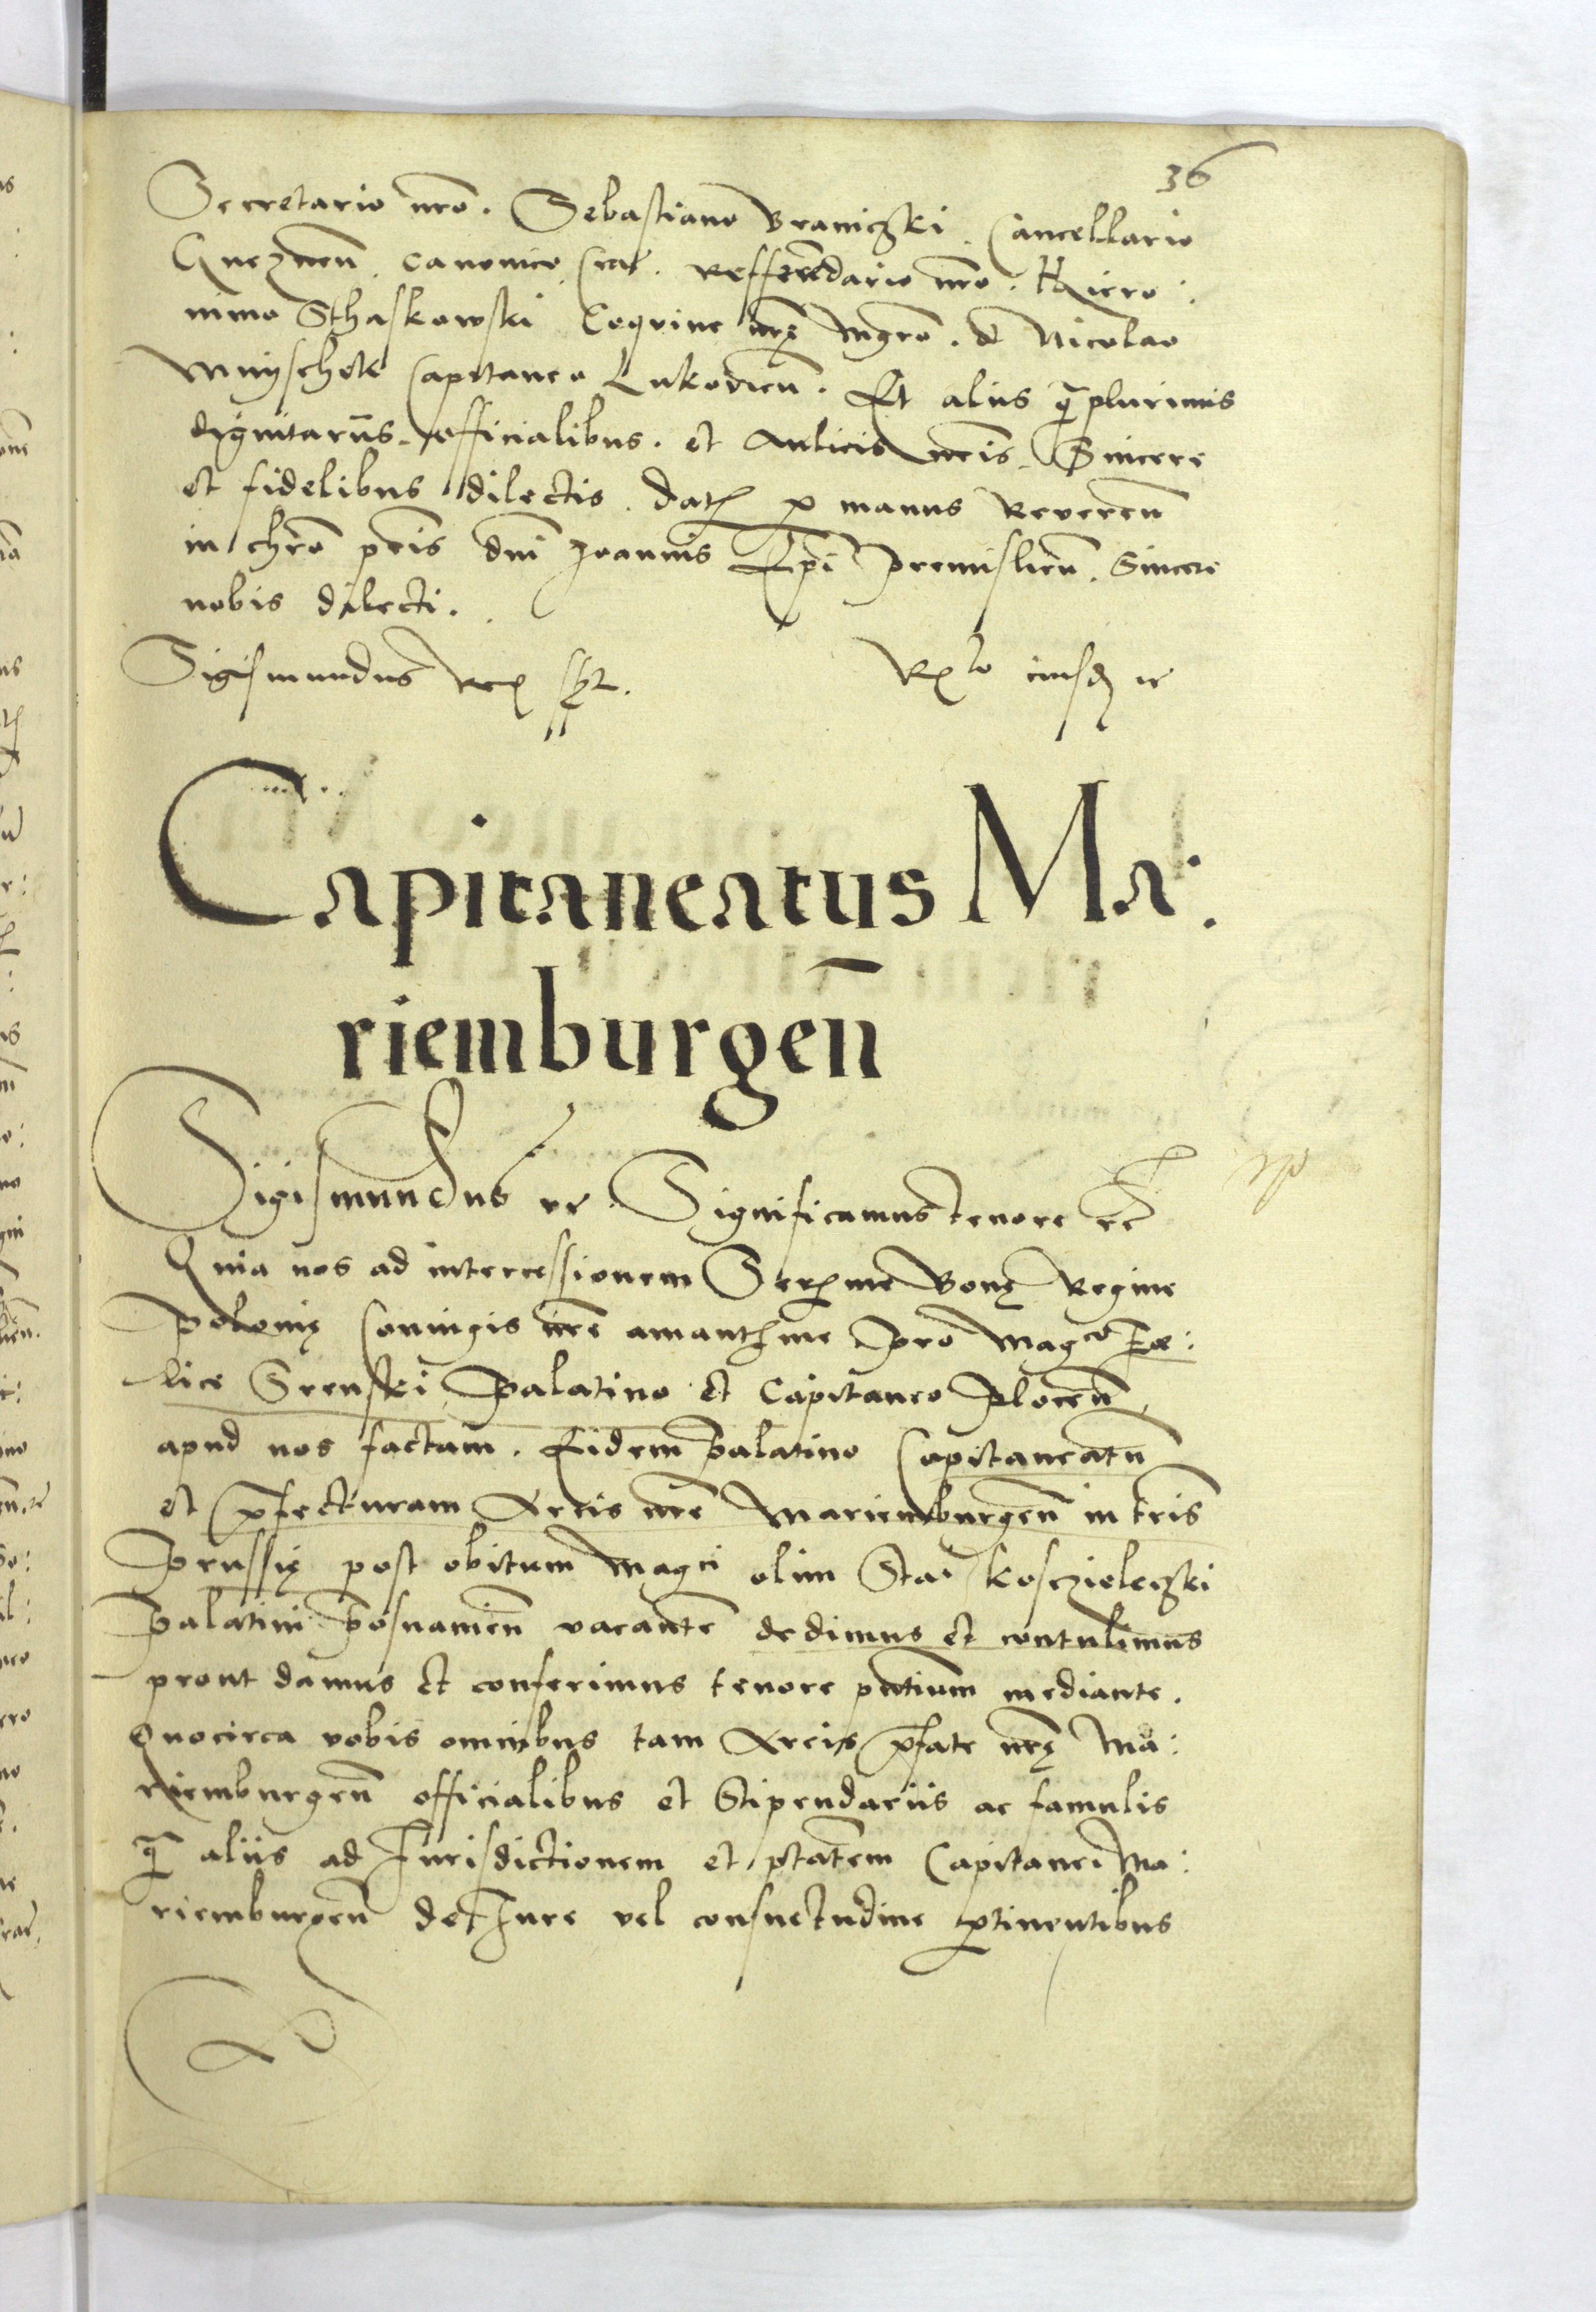 36
Secretario nrō. Sebastiano Braniczki. Cancellario
Gneznen̄. canonico Crac̄. Refferēdario nrō. Hiero:
nimo Sthaskowski Coqvine nrę mgrō. et Nicolao
Mnyschek Capitaneo Lukovien̄. Et aliis q̄ plurimis
dignitariis. officialibus. et aulicis nr̄is. Sincere
et fidelibus dilectis. Dat p manus Reveren̄
in chrō pr̄is dn̄i Joannis Ep̄i Premislien̄. Sincere
nobis dilecti.
Sigismundus Rex sst.
Rlo eiusdē
Capitaneatus Ma:
riemburgen̄
Sigismundus etc. Significamus tenore etc
Quia nos ad intercessionem Serme Bonę Regine
Polonię Coniugis nrē amantme pro Magco Fæ:
lice Srenski Palatino et Capitaneo Plocen̄,
apud nos factam. Eidem Palatino Capitaneatū
et p̄fecturam Arcis nrē Mariemburgen̄ in terris
Prussię post obitum Magci olim Stai Kosczieleczki
Palatini Posnanien̄ vacantē dedimus et contulimus
prout damus et conferimus tenore pn̄tium mediante.
Quocirca vobis omnibus tam Arcis p̄fate nrę Ma:
riemburgen̄ officialibus et Stipendariis ac famulis
q̄ aliis ad Jurisdictionem et ptātem Capitanei Ma:
riemburgen̄ de Jure vel consuetudine ptinentibus